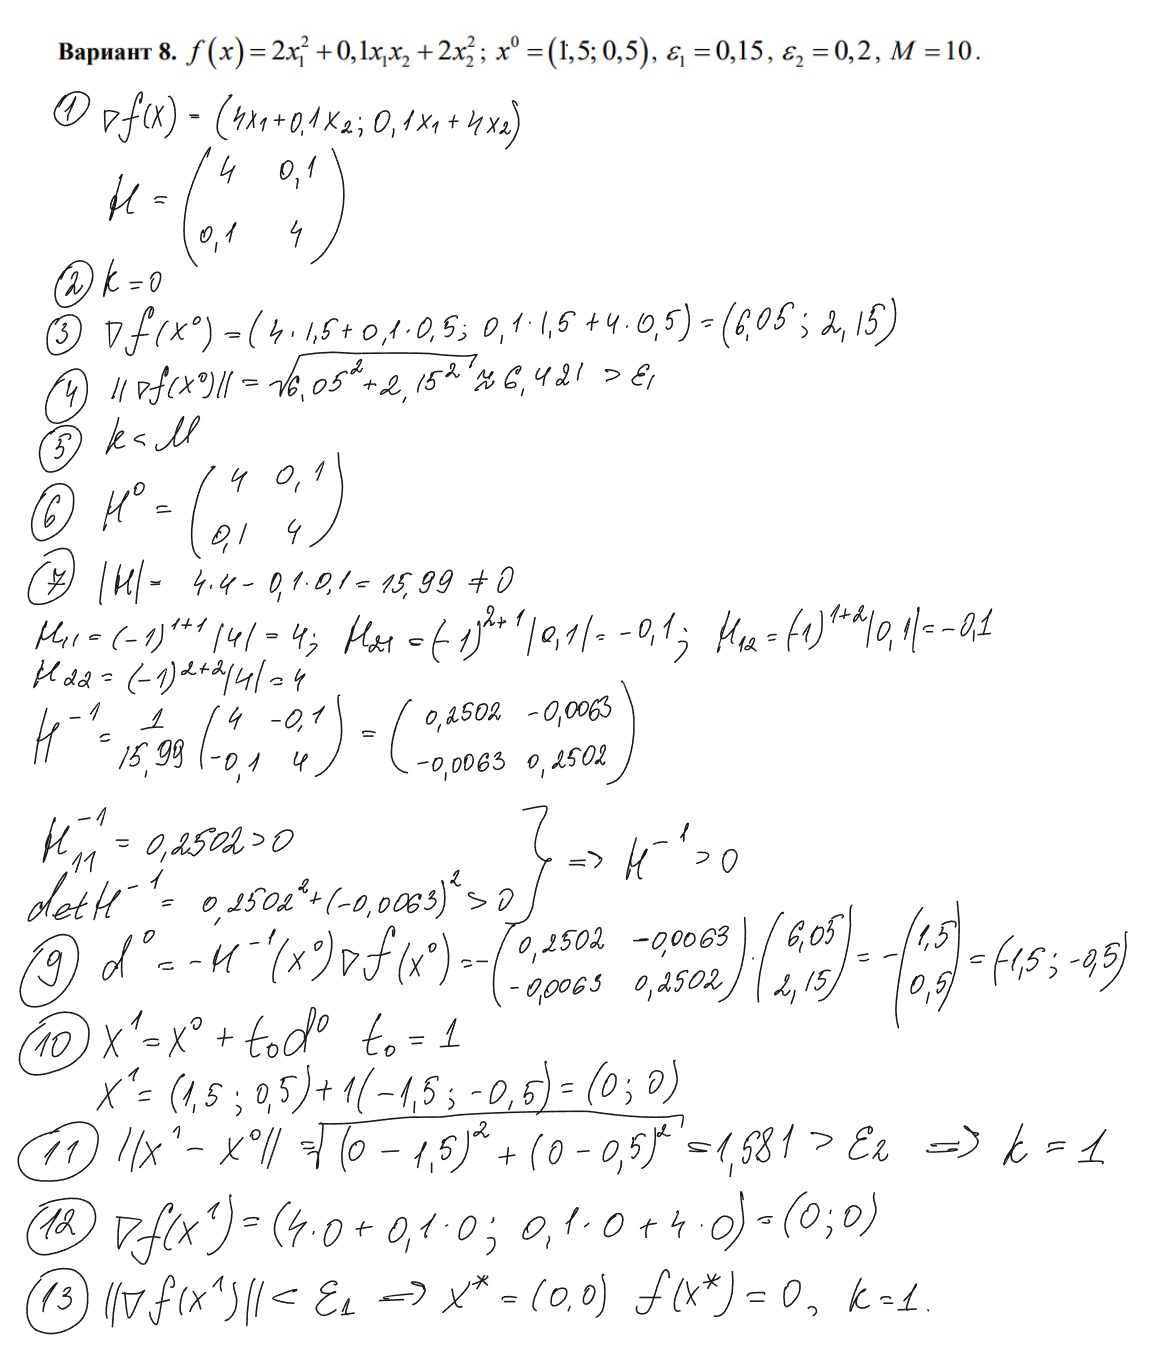 Вариант 8. f(x) = 2x₁² + 0,1x₁x₂ + 2x₂²; x⁰ = (1,5; 0,5), ε₁ = 0,15, ε₂ = 0,2, M = 10.
① ∇f(x) = (4x₁+0,1x₂; 0,1x₁+4x₂)
H = (4 0,1
0,1 4)
② k=0
③ ∇f(x⁰) = (4·1,5+0,1·0,5; 0,1·1,5+4·0,5) = (6,05; 2,15)
④ ||∇f(x⁰)|| = √(6,05²+2,15²) ≈ 6,421 > ε₁
⑤ k < M
⑥ H⁰ = (4 0,1
0,1 4)
⑦ |H| = 4·4 − 0,1·0,1 = 15,99 ≠ 0
H₁₁ = (−1)¹⁺¹|4| = 4; H₂₁ = (−1)²⁺¹|0,1| = −0,1; H₁₂ = (−1)¹⁺²|0,1| = −0,1
H₂₂ = (−1)²⁺²|4| = 4
H⁻¹ = 1/15,99 (4 −0,1
−0,1 4) = (0,2502 −0,0063
−0,0063 0,2502)
H₁₁⁻¹ = 0,2502 > 0
det H⁻¹ = 0,2502² + (−0,0063)² > 0 } => H⁻¹ > 0
⑨ d⁰ = −H⁻¹(x⁰)∇f(x⁰) = −(0,2502 −0,0063
−0,0063 0,2502)·(6,05
2,15) = −(1,5
0,5) = (−1,5; −0,5)
⑩ x¹ = x⁰ + t₀d⁰ t₀ = 1
x¹ = (1,5; 0,5) + 1(−1,5; −0,5) = (0; 0)
⑪ ||x¹ − x⁰|| = √((0 − 1,5)² + (0 − 0,5)²) = 1,581 > ε₂ => k = 1
⑫ ∇f(x¹) = (4·0 + 0,1·0; 0,1·0 + 4·0) = (0; 0)
⑬ ||∇f(x¹)|| < ε₁ => x* = (0,0) f(x*) = 0, k=1.